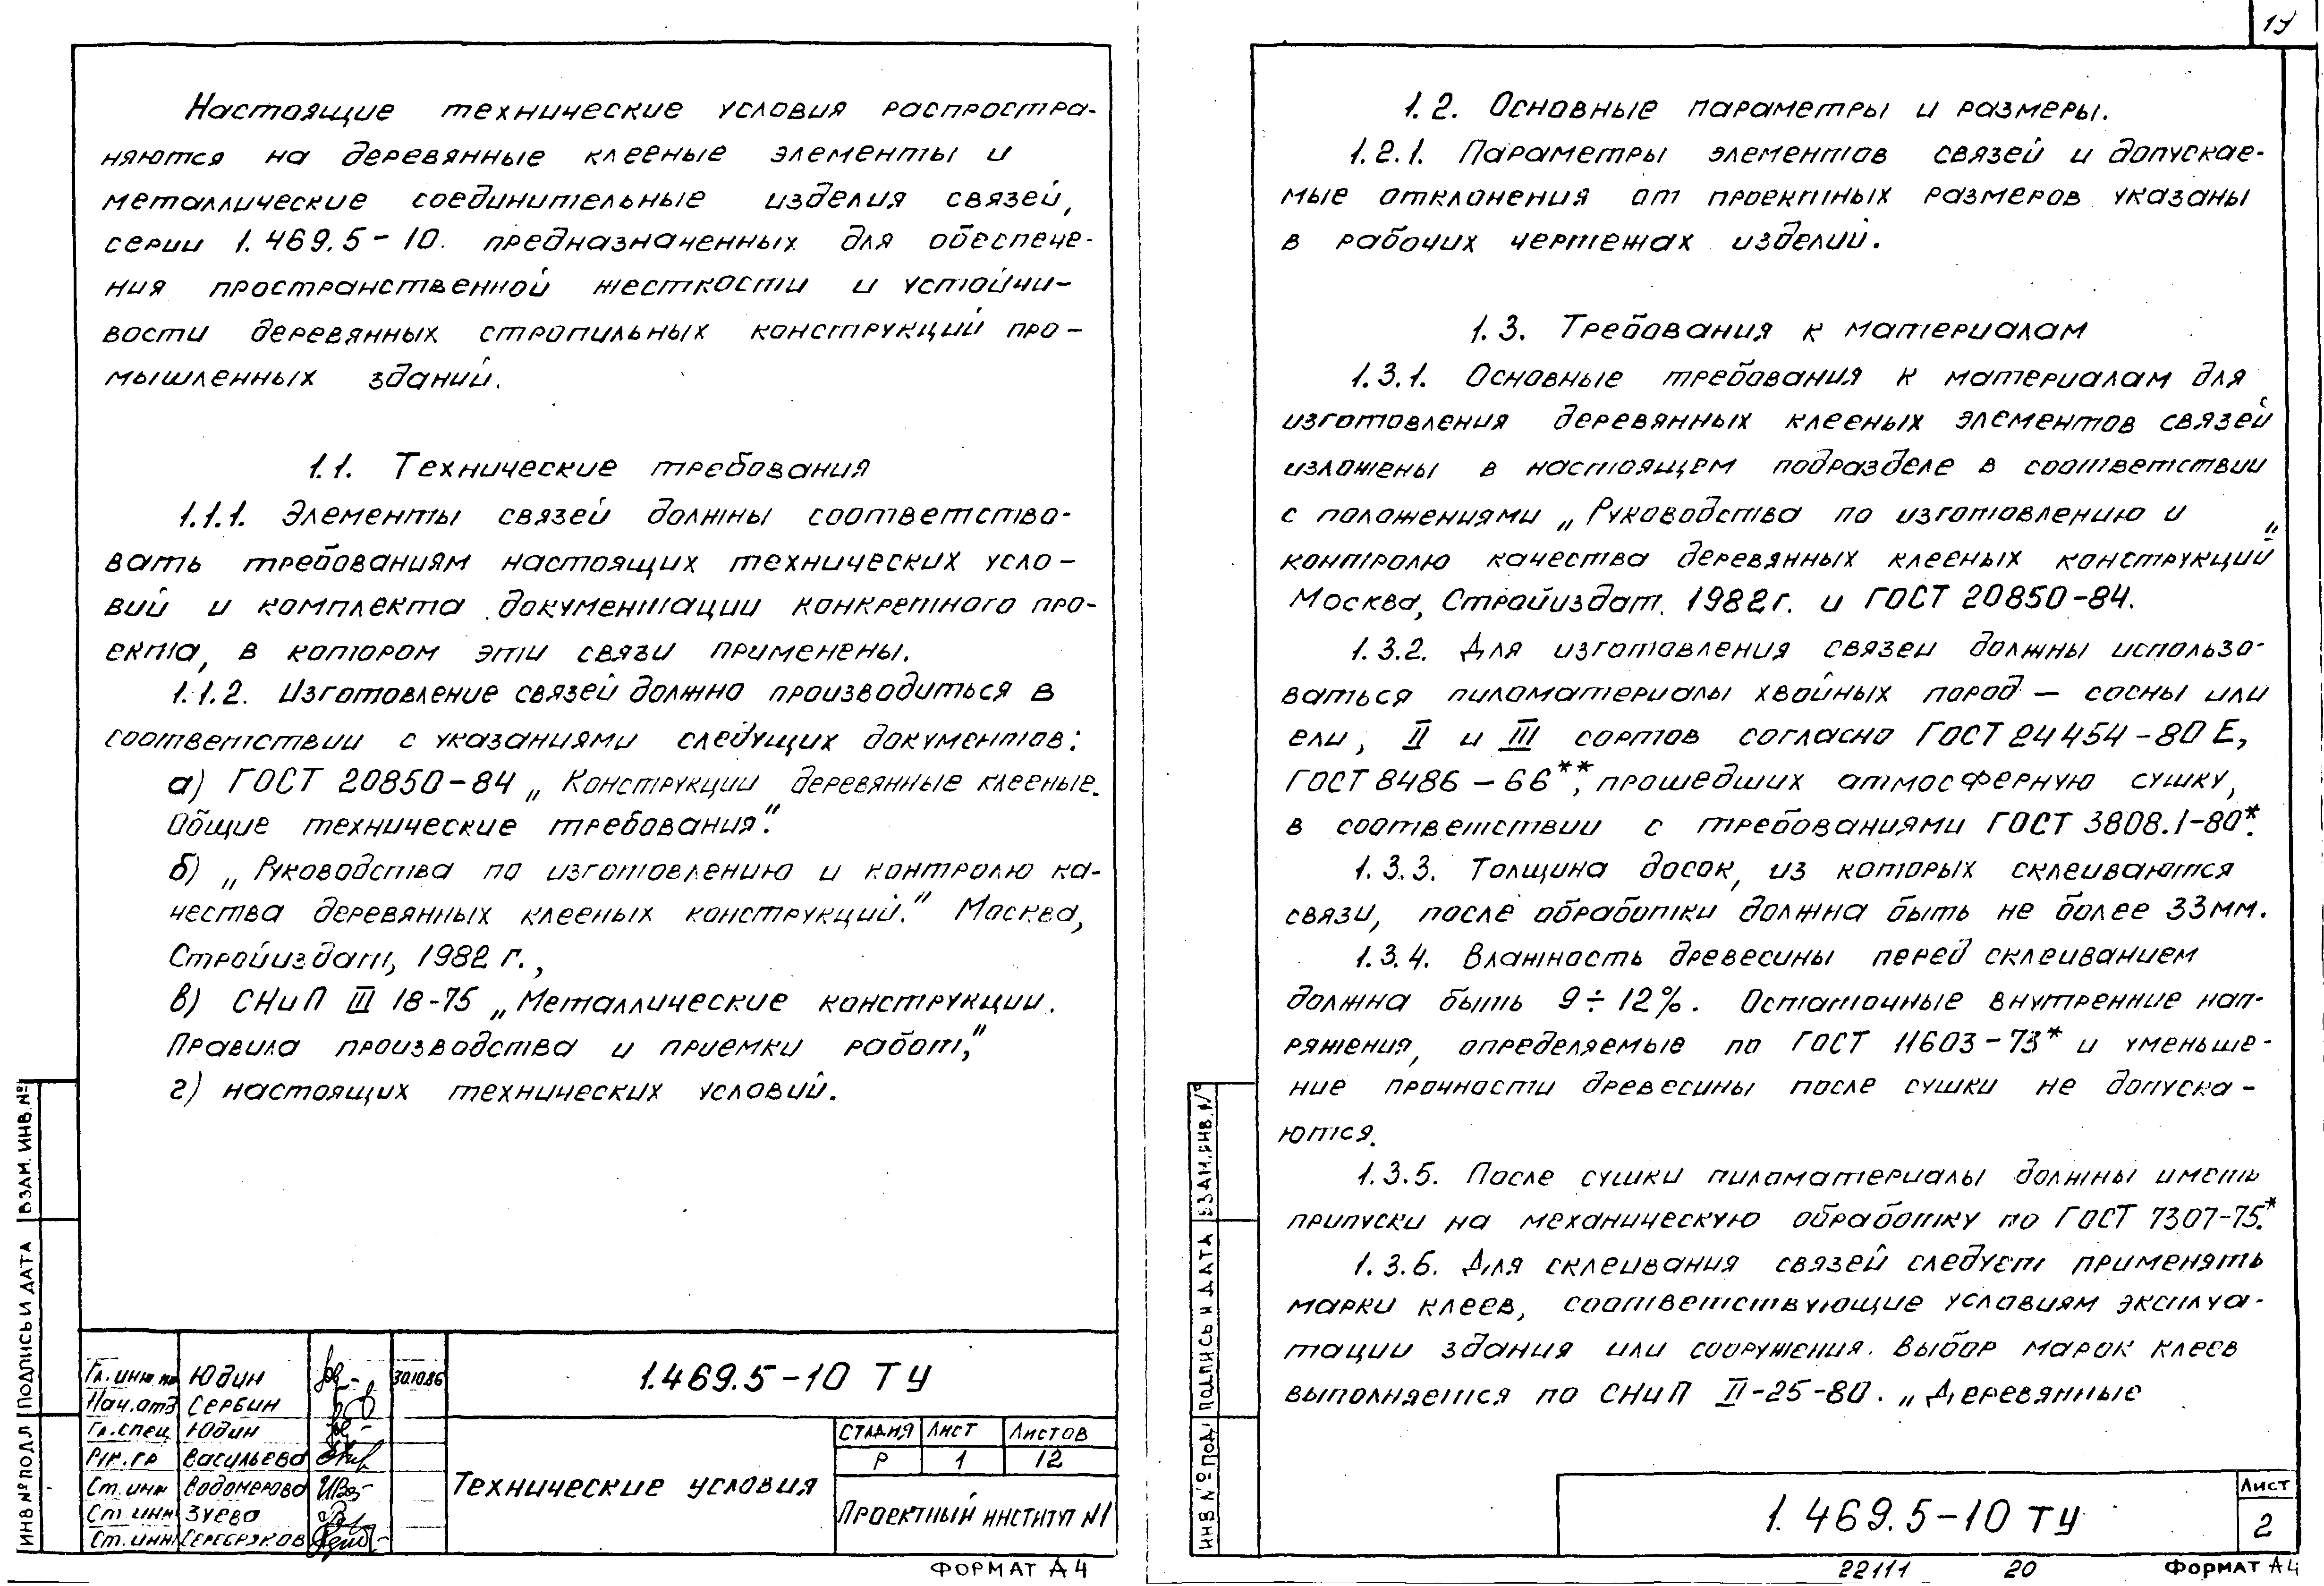 Настоящие технические условия распростра-
няются на деревянные клееные элементы и
металлические соединительные изделия связей,
серии 1.469.5-10. предназначенных для обеспече-
ния пространственной жесткости и устойчи-
вости деревянных стропильных конструкций про-
мышленных зданий.
1.1. Технические требования
1.1.1. Элементы связей должны соответство-
вать требованиям настоящих технических усло-
вий и комплекта документации конкретного про-
екта, в котором эти связи применены.
1.1.2. Изготовление связей должно производиться в
соответствии с указаниями следущих документов:
а) ГОСТ 20850-84 „Конструкции деревянные клееные.
Общие технические требования."
б) „Руководства по изготовлению и контролю ка-
чества деревянных клееных конструкций." Москва,
Стройиздат, 1982 г.,
в) СНиП III 18-75 „Металлические конструкции.
Правила производства и приемки работ,"
г) настоящих технических условий.
ВЗАМ. ИНВ. №
ПОДПИСЬ И ДАТА
ИНВ № ПОДЛ
Гл. инж пр Юдин 30.10.86
Нач. отд Сербин
Гл. спец Юдин
Рук. гр Васильева
Ст. инж Водомерова
Ст. инж Зуева
Ст. инж Серебряков
1.469.5-10 ТУ
Технические условия
СТАДИЯ ЛИСТ ЛИСТОВ
Р 1 12
ПРОЕКТНЫЙ ИНСТИТУТ N1
ФОРМАТ А4
19
1.2. Основные параметры и размеры.
1.2.1. Параметры элементов связей и допускае-
мые отклонения от проектных размеров указаны
в рабочих чертежах изделий.
1.3. Требования к материалам
1.3.1. Основные требования к материалам для
изготовления деревянных клееных элементов связей
изложены в настоящем подразделе в соответствии
с положениями „Руководства по изготовлению и
контролю качества деревянных клееных конструкций"
Москва, Стройиздат. 1982г. и ГОСТ 20850-84.
1.3.2. Для изготовления связеи должны использо-
ваться пиломатериалы хвойных пород — сосны или
ели, II и III сортов согласно ГОСТ 24454-80 Е,
ГОСТ 8486-66**, прошедших атмосферную сушку,
в соответствии с требованиями ГОСТ 3808.1-80*.
1.3.3. Толщина досок, из которых склеиваются
связи, после обработки должна быть не более 33мм.
1.3.4. Влажность древесины перед склеиванием
должна быть 9÷12%. Остаточные внутренние нап-
ряжения, определяемые по ГОСТ 11603-73* и уменьше-
ние прочности древесины после сушки не допуска-
ются.
1.3.5. После сушки пиломатериалы должны иметь
припуски на механическую обработку по ГОСТ 7307-75.*
1.3.6. Для склеивания связей следует применять
марки клеев, соответствующие условиям эксплуа-
тации здания или сооружения. Выбор марок клеев
выполняется по СНиП II-25-80. „Деревянные
ВЗАМ. ИНВ. №
ПОДПИСЬ И ДАТА
ИНВ № ПОД
1.469.5-10 ТУ
ЛИСТ
2
22111 20 ФОРМАТ А4